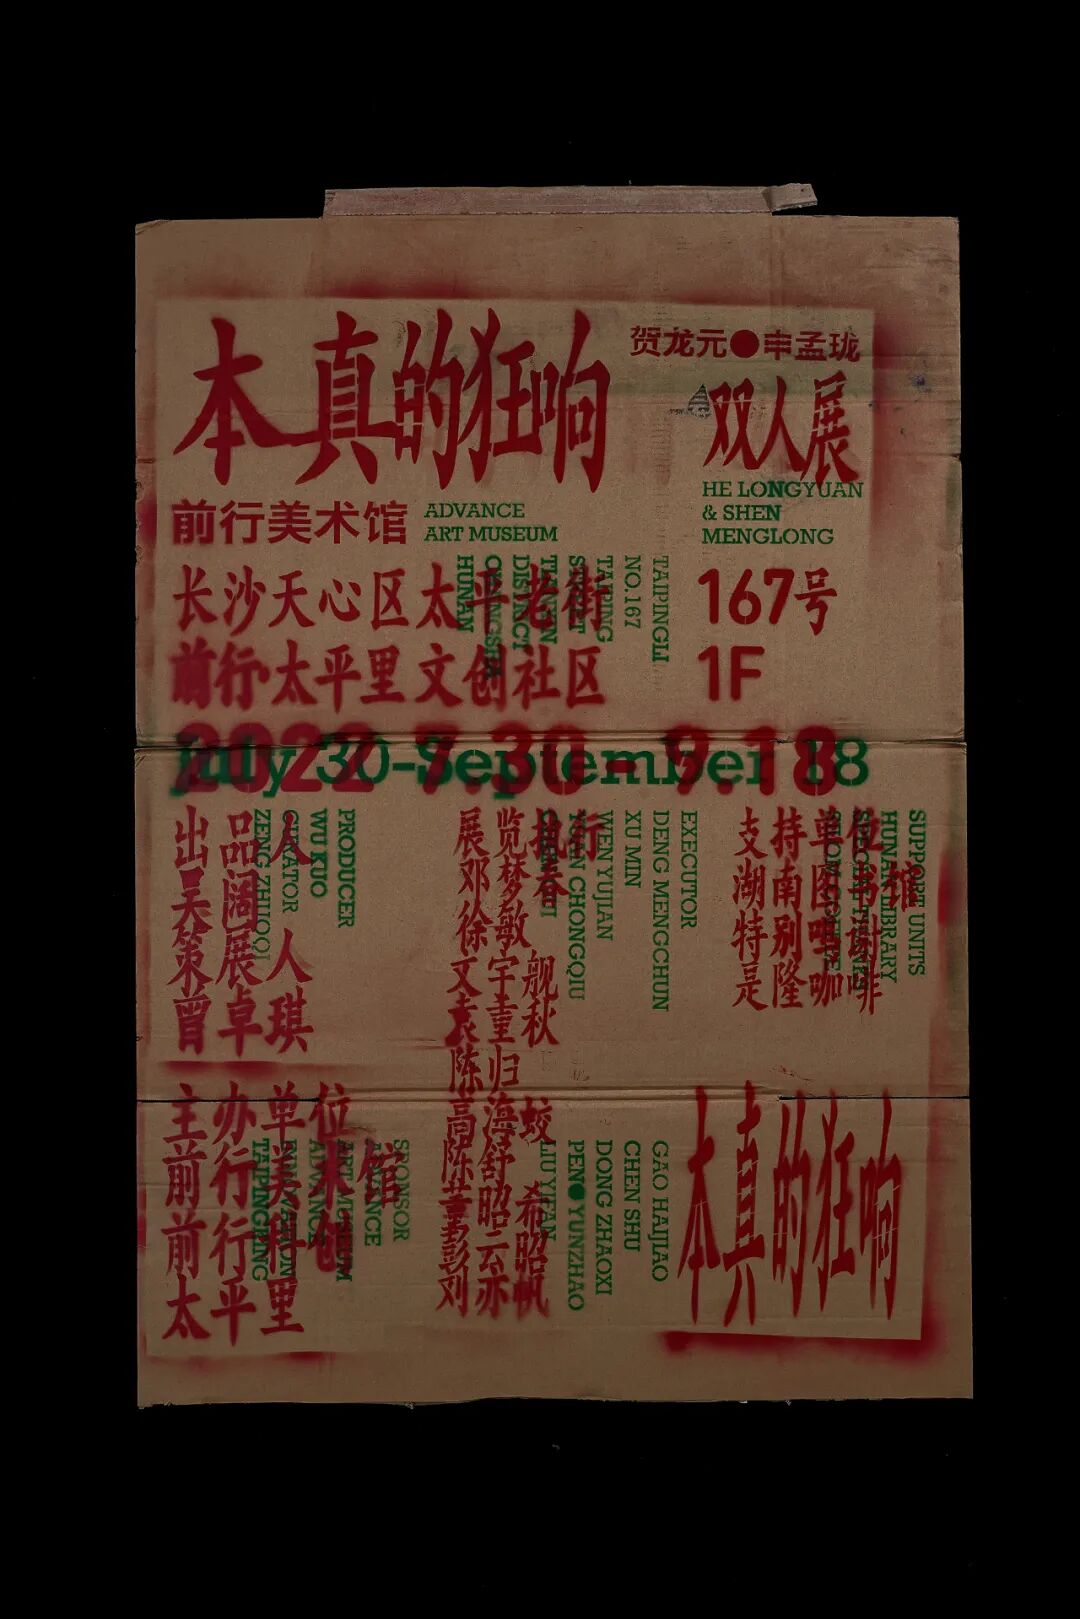 本真的狂响
贺龙元●申孟珑
双人展
HE LONGYUAN
& SHEN
MENGLONG
前行美术馆
ADVANCE
ART MUSEUM
长沙天心区太平老街
167号
前行·太平里文创社区
1F
TAIPINGLI
NO.167
TAIPING
STREET
TIANXIN
DISTINCT
CHANGSHA
HUNAN
2022 7.30-9.18
July 30-September 18
出品人
吴阔
策展人
曾卓琪
PRODUCER
WU KUO
CURATOR
ZENG ZHUOQI
展览执行
邓梦春
徐敏
文宇舰
袁重秋
陈归
高海蛟
陈舒
董昭希
彭云昭
刘亦帆
EXECUTOR
DENG MENGCHUN
XU MIN
WEN YUJIAN
YUAN CHONGQIU
GAO HAIJIAO
CHEN SHU
DONG ZHAOXI
PENG YUNZHAO
LIU YIFAN
支持单位
湖南图书馆
特别鸣谢
是隆咖啡
SUPPORT UNITS
HUNAN LIBRARY
SPECIAL THANKS
主办单位
前行美术馆
前行科创
太平里
SPONSOR
ADVANCE
ART MUSEUM
ADVANCE
INNOVATION
TAIPINGPING
本真的狂响